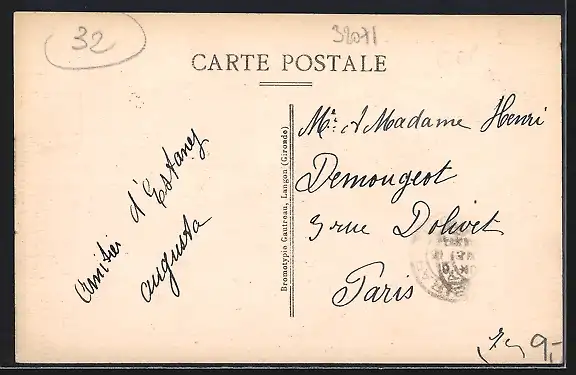 32
32071
CARTE POSTALE
Mr & Madame Henri
Demougeot
3 rue Dolivet
Paris
Bromotypie Gautreau, Langon (Gironde)
amitiés
d'Estang
augusta
9,-